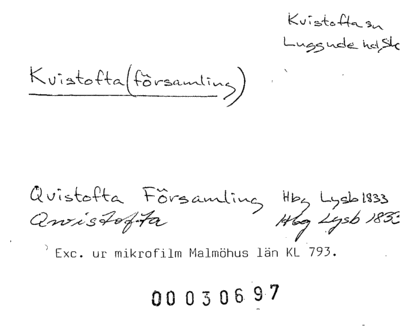 Kvistofta sn
Luggude hd, Sk
Kvistofta (församling)
Qvistofta Församling Hbg Lysb 1833
Qwistofta Hbg Lysb 1833
Exc. ur mikrofilm Malmöhus län KL 793.
00030697